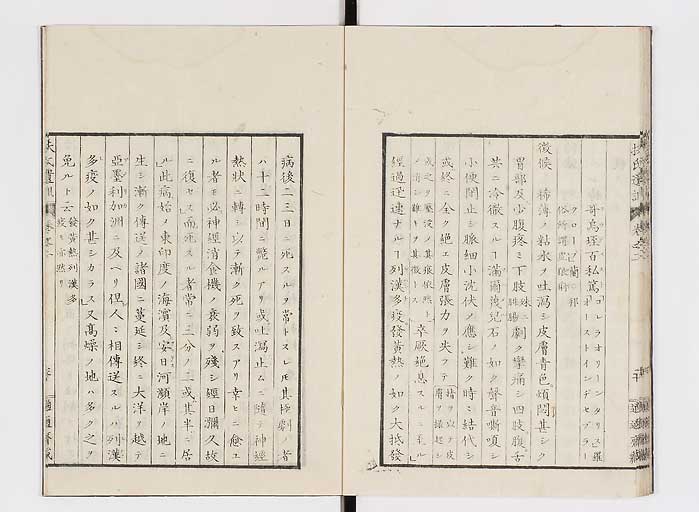 哥烏垤百私篤「コレラオリーンタリス」羅
「オーストインデセブラー
クロー」蘭 一邪
俗所謂
徴候 稀薄ノ粘水ヲ吐瀉シ皮膚青色煩悶甚シク
胃部及少腹疼ミ下肢殊ニ腓腸劇ク攣痛シ四肢腹舌
共ニ冷徹スルヿ満爾瀉兒石ノ如ク聲音嘶嗄シ
小便閉止シ脈細小沈伏ノ應シ難ク時ニ結代シ
或終ニ全ク絶エ皮膚張力ヲ失フテ
或之ヲ壓没ノ其痕依然ト 卒厥絶息スルニ至ル
經過迅速ナルヿ列漢多疫發黄熱ノ如ク大抵發
病後二三日ニ死スルヲ常トスレ𪜈其極劇ノ者
ハ十二時間ニ斃ルアリ或吐瀉止ムニ隨テ神經
熱状ニ轉シ以テ漸ク死ヲ致スアリ幸ニ愈エ
ル者モ必神經消食機ノ衰弱ヲ殘シ經日彌久故
ニ復セス而死スル者常ニ三分ノ二或其半ニ居
ル此病始メ東印度ノ海濱及安日河瀕岸ノ地ニ
生シ漸ク傳送ノ諸國ニ蔓延シ終ニ大洋ヲ越テ
亞墨利加洲ニ及ヘリ但人ニ相傳送スルハ列漢
多疫ノ如ク甚シカラス又髙燥ノ地ハ多ク之ヲ
免ルト云 發黄熱列漢多
疫モ亦然リ
扶氏遺訓